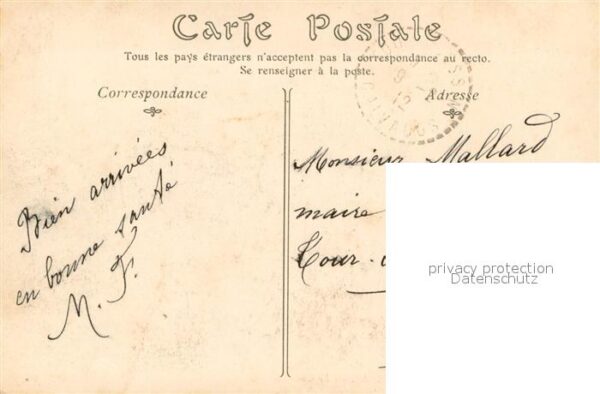 Carte Postale
Tous les pays étrangers n'acceptent pas la correspondance au recto.
Se renseigner à la poste.
Correspondance
Adresse
CALVADOS
Bien arrivées
en bonne santé
M. F.
Monsieur Mallard
maire
Tour
privacy protection
Datenschutz